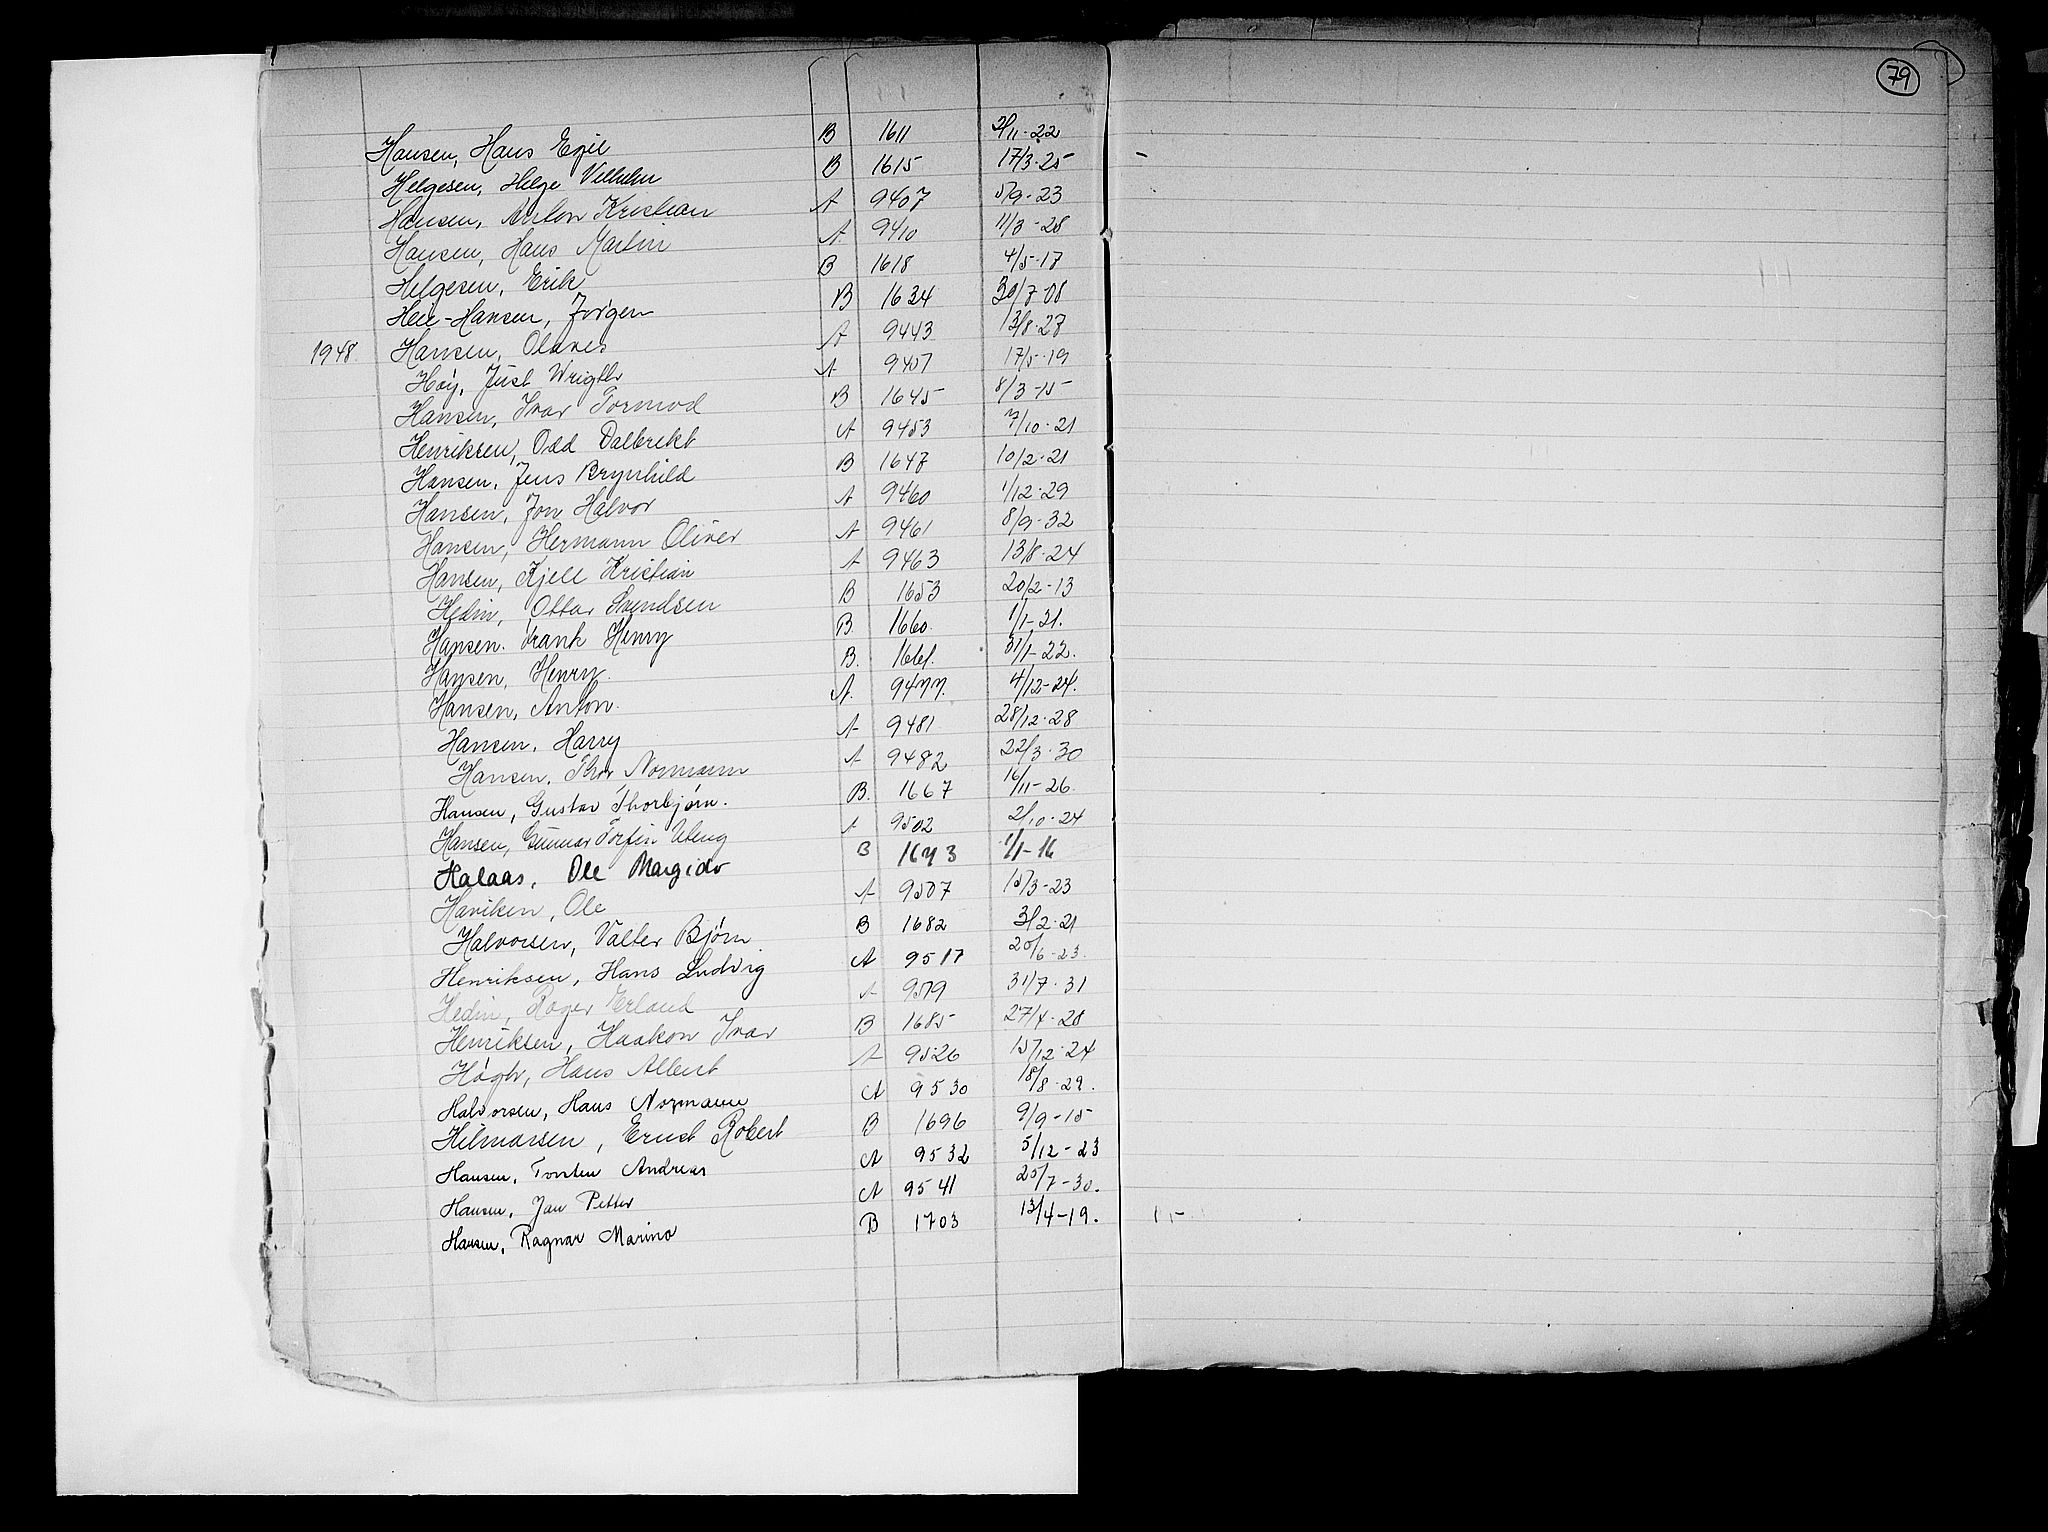 79
Hansen, Hans Egil B 1611 2/11-22
Helgesen, Helge Vilhelm B 1615 17/3-25
Hansen, Anton Kristian A 9407 5/9-23
Hansen, Hans Martin A 9410 11/3-28
Helgesen, Erik B 1618 4/5-17
Heie-Hansen, Jørgen B 1634 30/7-08
1948 Hansen, Olaves A 9443 13/8-27
Høy, Just A 9451 17/5-19
Hansen, Ivar Tormod B 1645 8/3-15
Henriksen, Odd Dalbrekt A 9453 7/10-21
Hansen, Jens Brynhild B 1647 10/2-21
Hansen, Jon Halvor A 9460 1/12-29
Hansen, Hermann Oliver A 9461 8/9-32
Hansen, Kjell Kristian A 9463 13/8-24
Hedin, Ottar Svendsen B 1653 20/2-13
Hansen. Frank Henry B. 1660. 1/1-21.
Hansen, Henry. B. 1661. 31/1-22.
Hansen, Anton. A. 9477. 4/12-24.
Hansen, Harry A 9481 28/12-28
Hansen, Thor Normann A 9482 22/3-30
Hansen, Gustav Thorbjørn. B. 1667 16/11-26.
Hansen, Gunnar Torfin A 9502 2/10-24
Halaas, Ole Margido B 1673 1/1-16
Haviken, Ole A 9507 15/3-23
Halvorsen, Valter Bjørn B 1682 3/2-21
Henriksen, Hans Ludvig A 9517 20/6-23.
Hedin, Roger Erland A 9519 31/7-31
Henriksen, Haakon Ivar B 1685 27/4-28
Høgh, Hans Albert A 9526 15/12-24
Halvorsen, Hans Normann A 9530 18/8-29.
Hilmarsen, Ernst Robert B 1696 9/9-15
Hansen, Torsten Andreas A 9532 5/12-23
Hansen, Jan Petter A 9541 25/7-30.
Hansen, Ragnar Marino B 1703 13/4-19.